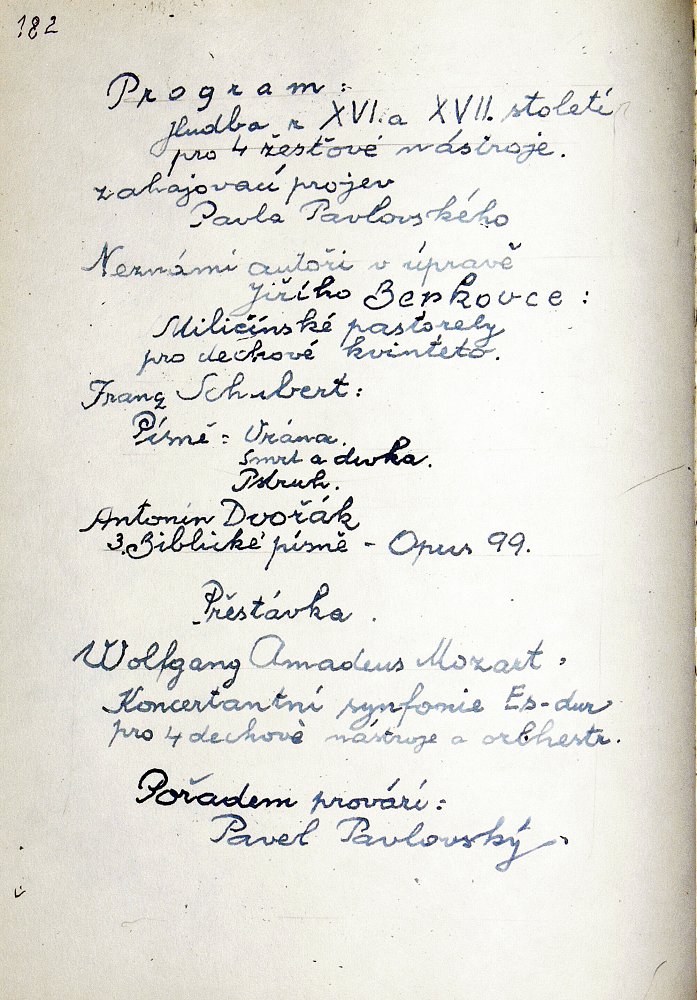 182
Program:
Hudba z XVI. a XVII. století
pro 4 žesťové nástroje.
zahajovací projev
Pavla Pavlovského
Neznámí autoři v úpravě
Jiřího Berkovce:
Miličínské pastorely
pro dechové kvinteto.
Franz Schubert:
Písně: Vrána.
Smrt a dívka.
Pstruh.
Antonín Dvořák
3. Biblické písně - Opus 99.
Přestávka.
Wolfgang Amadeus Mozart:
Koncertantní synfonie Es-dur
pro 4 dechové nástroje a orkhestr.
Pořadem prování:
Pavel Pavlovský.